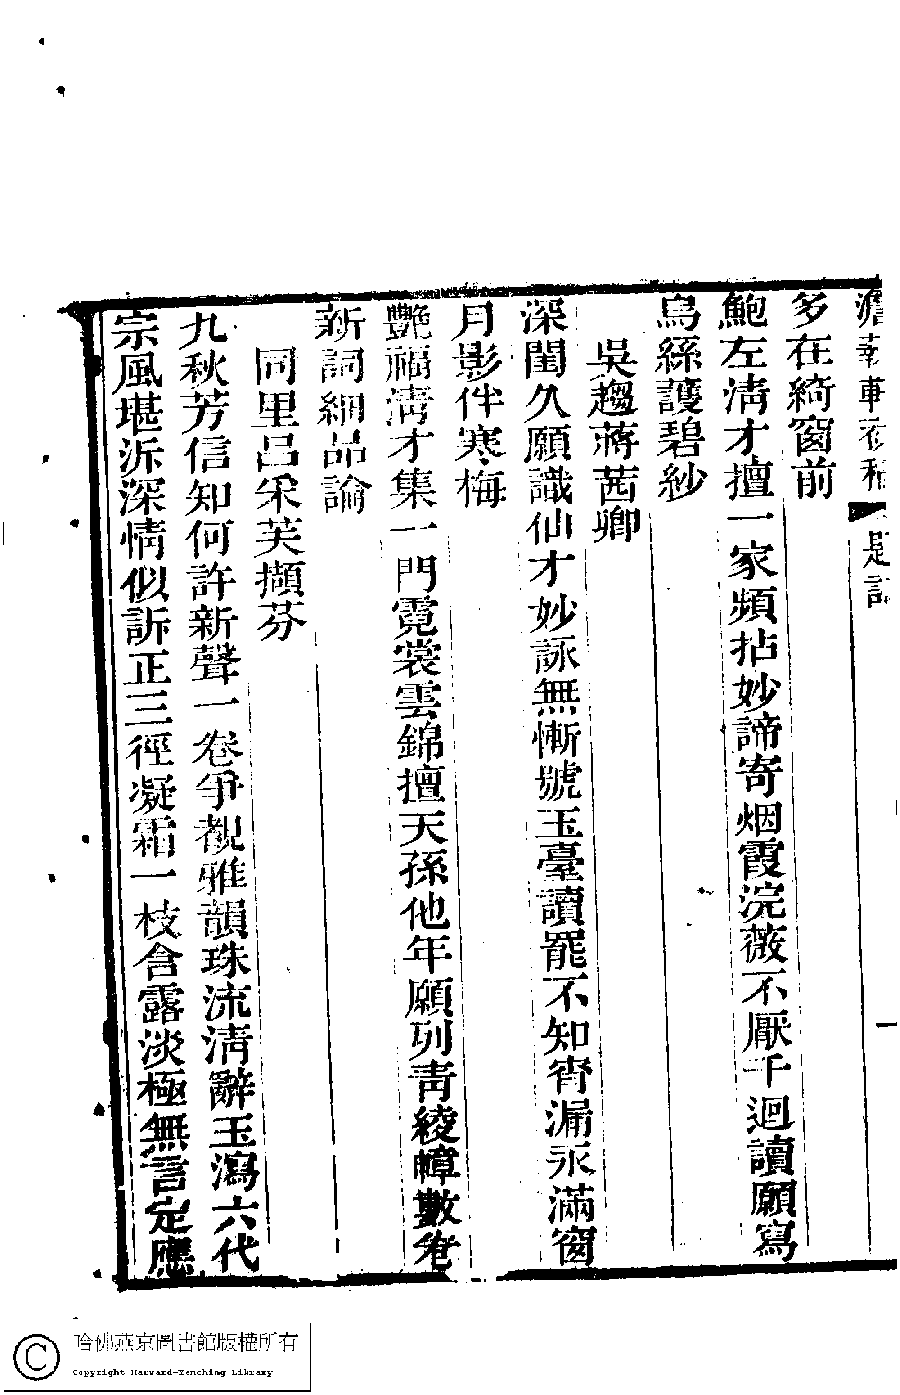 題詞
多在綺窗前
鮑左清才擅一家頻拈妙諦寄烟霞浣薇不厭千迴讀願寫
烏絲護碧紗
吳趨蔣茜卿
深閨久願識仙才妙詠無慚號玉臺讀罷不知宵漏永滿窗
月影伴寒梅
艷福清才集一門霓裳雲錦擅天孫他年願列青綾幛數卷
新詞細品論
同里呂采芙擷芬
九秋芳信知何許新聲一卷爭觀雅韻珠流清辭玉瀉六代
宗風堪泝深情似訴正三徑凝霜一枝含露淡極無言定應
哈佛燕京圖書館版權所有
Copyright Harvard-Yenching Library